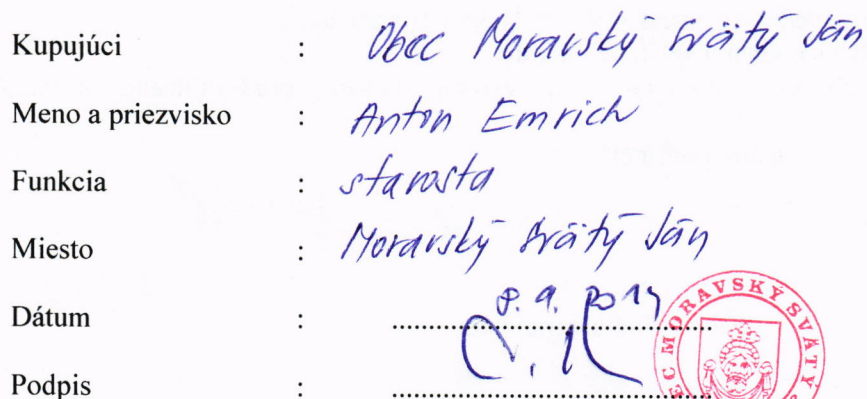 Kupujúci : Obec Moravský Svätý Ján
Meno a priezvisko : Anton Emrich
Funkcia : starosta
Miesto : Moravský Svätý Ján
Dátum : 8. 9. 2014
Podpis :
EC MORAVSKÝ SVÄTÝ